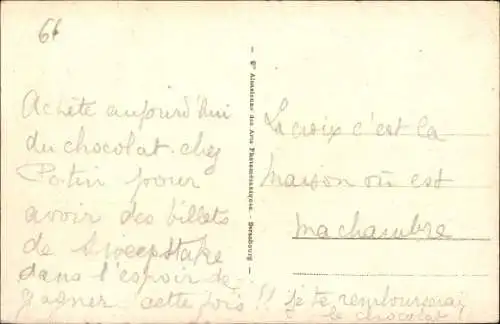 66
Achète aujourd'hui
du chocolat chez
Potin pour
avoir des billets
de Sweepstake
dans l'espoir de
gagner cette fois !!
— Cie Alsacienne des Arts Photomécaniques - Strasbourg —
La croix c'est la
maison où est
ma chambre
je te rembourserai
le chocolat !